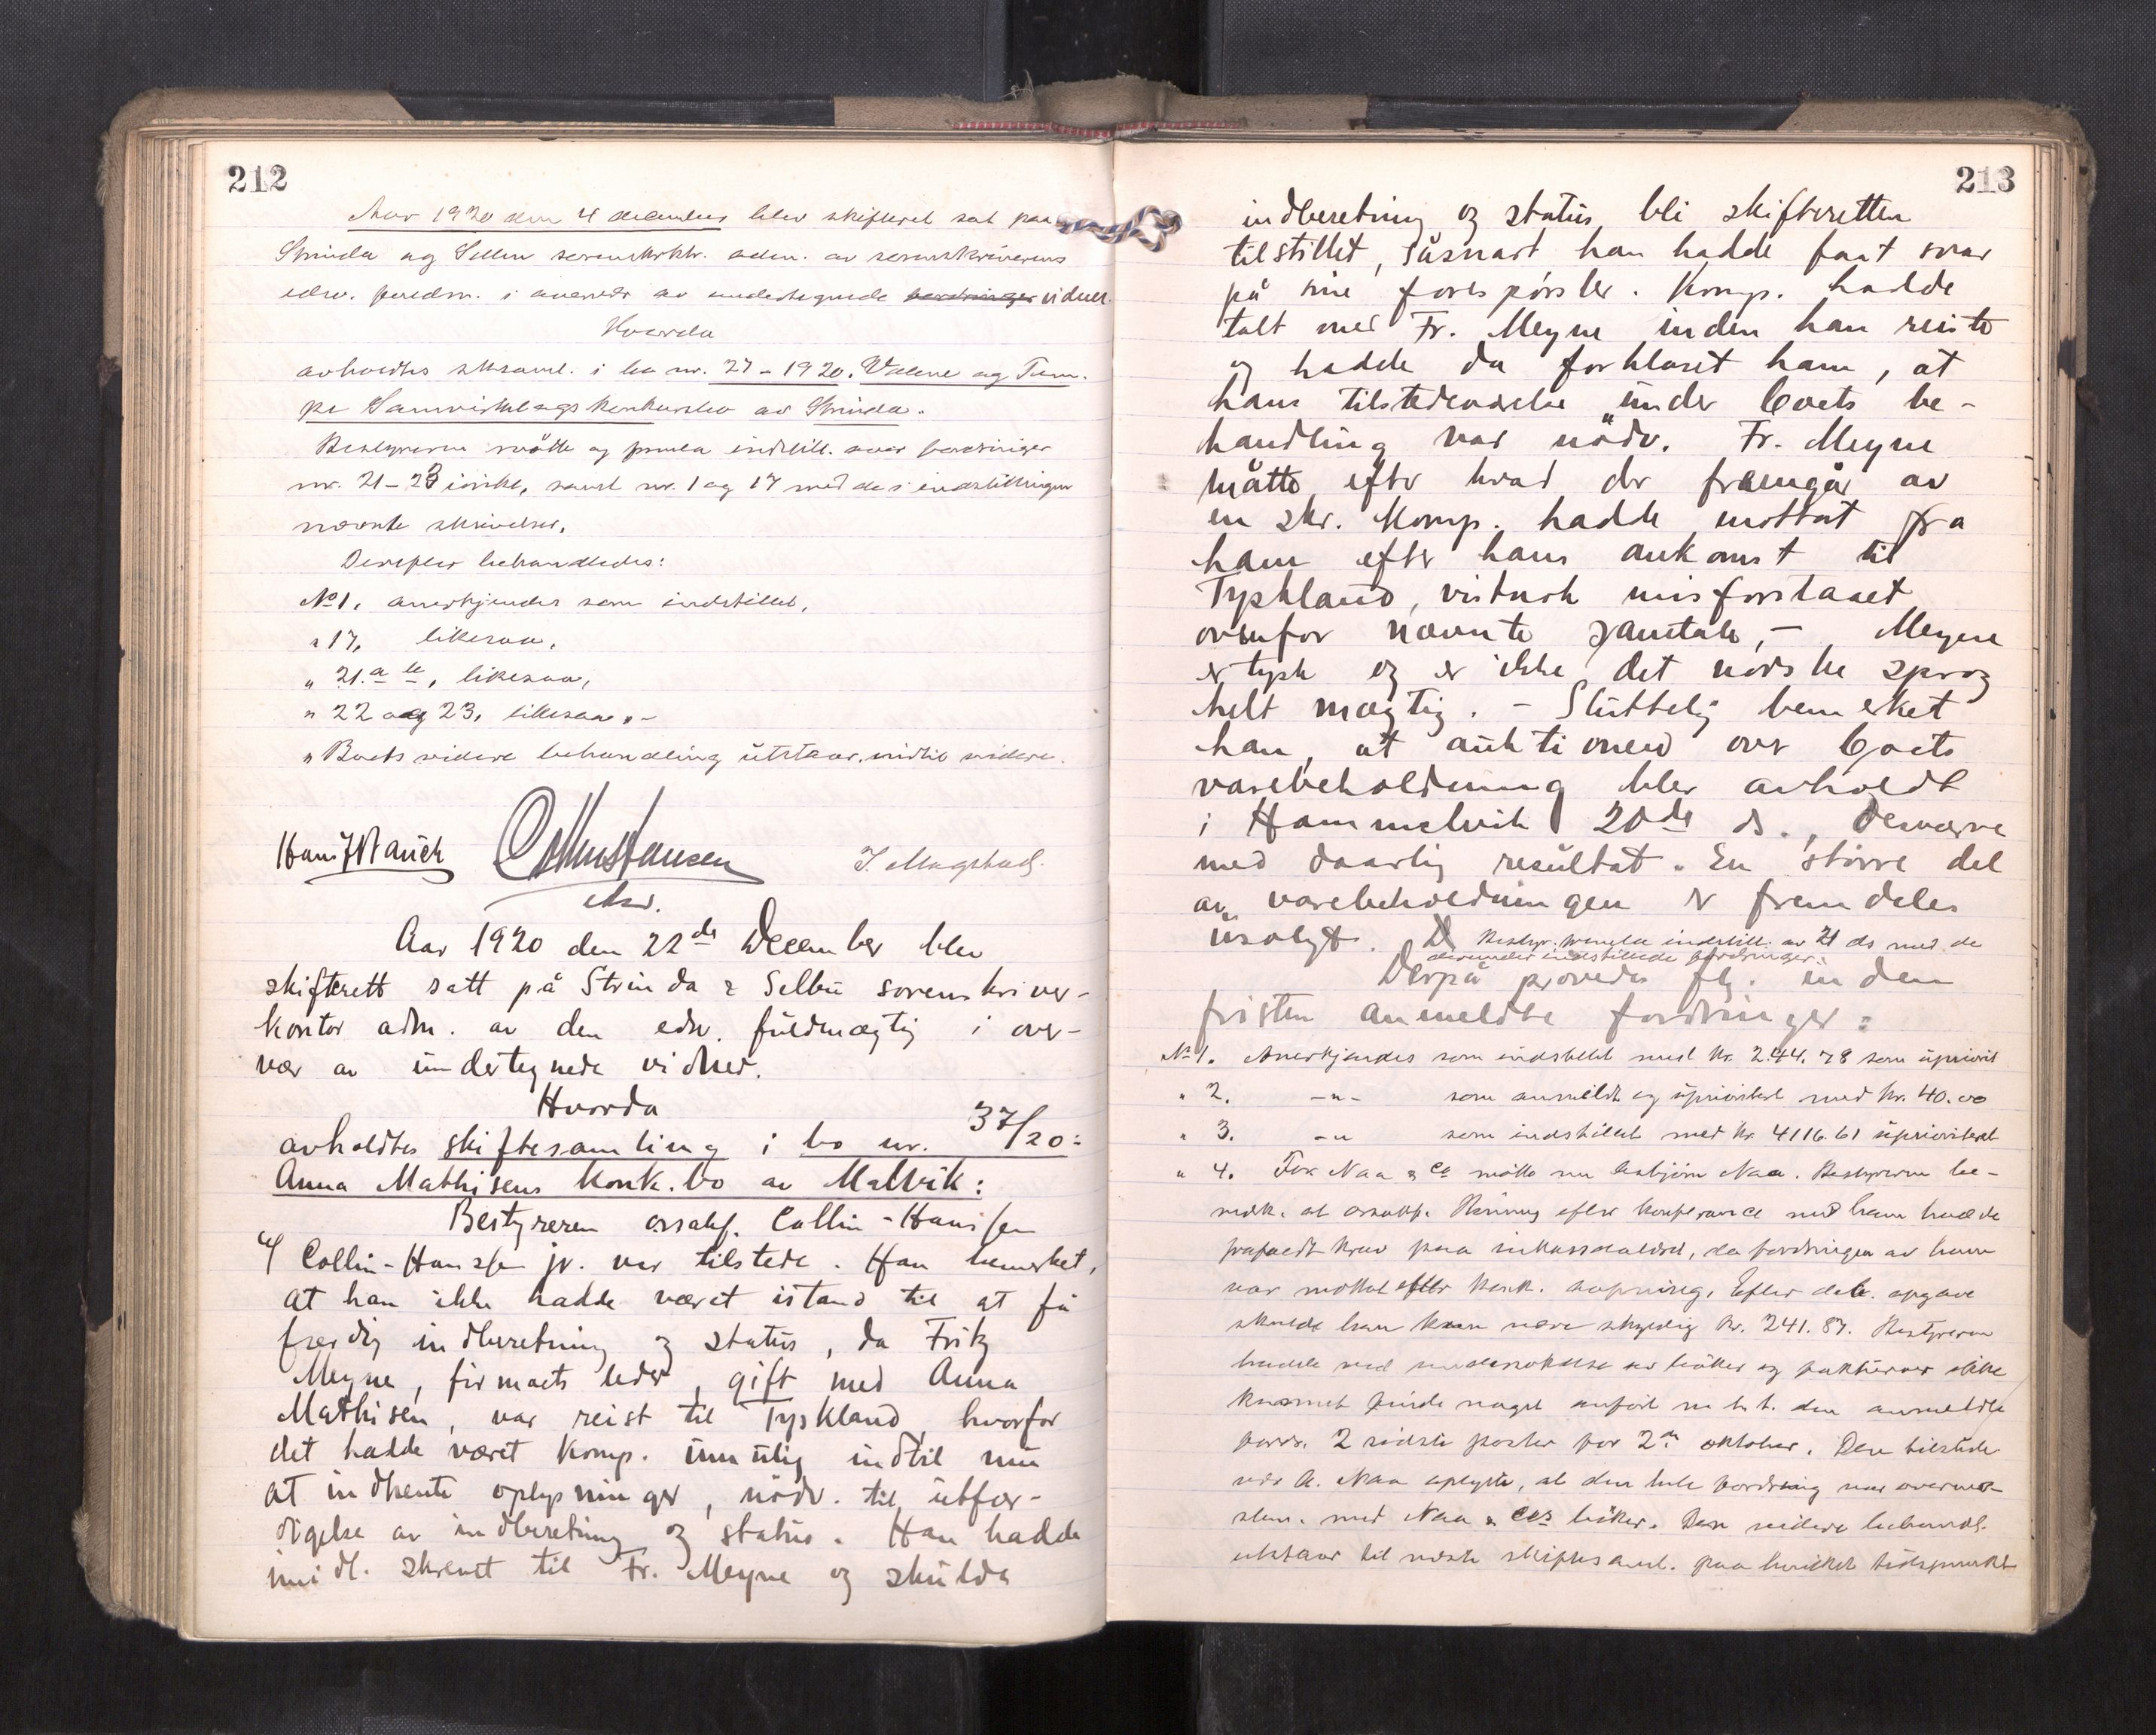 212
Aar 1920 den 4 december blev skifteret sat paa
Strinda og Selbu sorenskrktr. adm. av sorenskriverens
edsv. fuldm. i overvær av undertegnede vidner.
Hvorda
avholdtes sksaml. i bo nr. 27 - 1920. Valene og Tem-
pe Samvirkelags konkursbo av Strinda.
Bestyreren møtte og fremla indstill. over fordringer
nr. 21-23 inkl., samt nr. 1 og 17 med de i indstillingen
nævnte skrivelser.
Derefter behandledes:
No 1. anerkjendes som indstillet,
" 17, likesaa,
" 21. a , likesaa,
" 22 og 23, likesaa. -
" Boets videre behandling utstaar indtil videre.
I. Magstad.
Aar 1920 den 22de December blev
skifterett satt på Strinda & Selbu sorenskriver-
kontor adm. av den edsv. fuldmægtig i over-
vær av undertegnede vidner.
Hvorda
avholdtes skiftesamling i bo nr. 37/20:
Anna Mathisens konk.bo av Malvik:
Bestyreren orsakf. Collin-Hanssen
v/ Collin-Hanssen jr. var tilstede. Han bemerket,
at han ikke hadde været istand til at få
færdig indberetning og status, da Fritz
Meyne, firmaets leder, gift med Anna
Mathisen, var reist til Tyskland, hvorfor
det hadde været komp. umulig indtil nu
at indhente oplysninger, nödv. til utfær-
digelse av indberetning og status. Han hadde
imidl. skrevet til Fr. Meyne og skulde
213
indberetning og status bli skifteretten
tilstillet, såsnart han hadde faat svar
på sine forespörsler. Komp. hadde
talt med Fr. Meyne inden han reiste
og hadde da forklaret ham, at
hans tilstedeværelse under boets be-
handling var nödv. Fr. Meyne
måtte, efter hvad der fremgår av
en skr. Komp. hadde mottat fra
ham efter hans ankomst til
Tyskland, vistnok misforstaaet
ovenfor nævnte samtale, - Meyne
er tysk og er ikke det norske sprog
helt mægtig. - Sluttelig bemerket
han, at auktionen over boets
varebeholdning blev avholdt
i Hommelvik 20de ds., desværre
med daarlig resultat. En större del
av varebeholdningen er fremdeles
usolgt. Bestyr. fremla indstill. av 21 ds med de
derunder indstillede fordringer.
Derpå prövedes flg. inden
fristen anmeldte fordringer:
No 1. Anerkjendes som indstillet med kr. 244.78 som upriorit
" 2. -"- som anmeldt og uprioritert med kr. 40.00
" 3. -"- som indstillet med kr. 4116.61 uprioritert
" 4. For Naa & Co møtte nu Asbjörn Naa. Bestyreren be-
merk. at orsakf. Rönning efter konferance med ham hadde
frafaldt krav paa inkassosalær, da fordringen av ham
var mottat efter konk. aapning. Efter deb. opgave
skulde han kun være skyldig kr. 241.87. Bestyreren
hadde ved undersökelse av böker og fakturaer ikke
kunnet finde noget anført m.h.t. den anmeldte
fordr. 2 sidste poster for 2den oktober. Den tilstede-
vær. A. Naa oplyste, at den hele fordring var overens-
stem. med Naa & Co's böker. Den videre behandl.
utstaar til næste skiftesaml. paa hvilket tidspunkt